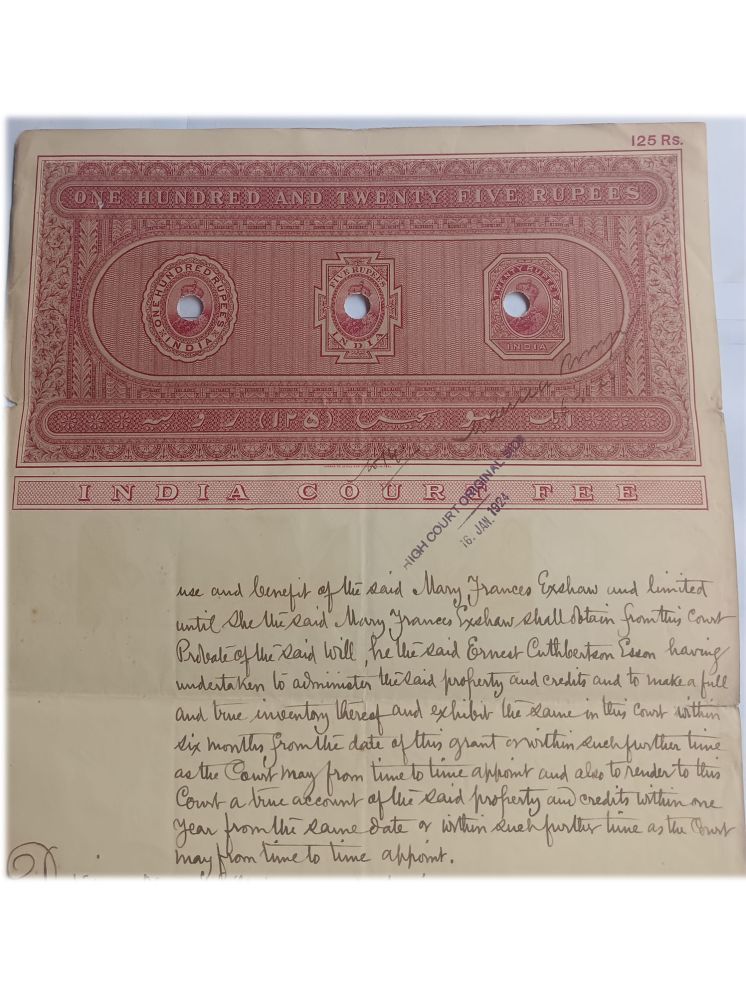 125 Rs.
ONE HUNDRED AND TWENTY FIVE RUPEES
ONE HUNDRED RUPEES INDIA
FIVE RUPEES INDIA
TWENTY RUPEES INDIA
(۱۲۵)
INDIA COURT FEE
HIGH COURT ORIGINAL SIDE
16. JAN. 1924
use and benefit of the said Mary Frances Exshaw and limited
until She the said Mary Frances Exshaw shall obtain from this Court
Probate of the said Will, he the said Ernest Cuthbertson Esson having
undertaken to administer the said property and credits and to make a full
and true inventory thereof and exhibit the same in this Court within
six months from the date of this grant or within such further time
as the Court may from time to time appoint and also to render to this
Court a true account of the said property and credits within one
Year from the same date or within such further time as the Court
may from time to time appoint.